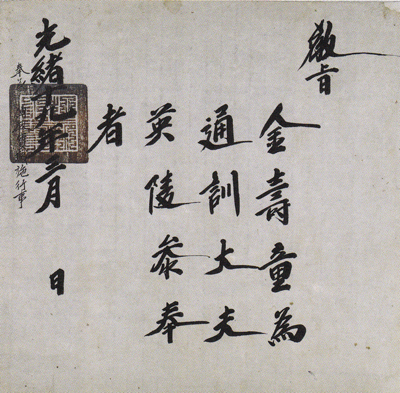 敎旨
金壽童爲
通訓大夫
英陵叅奉
者
光緒十九年三月 日
施行事